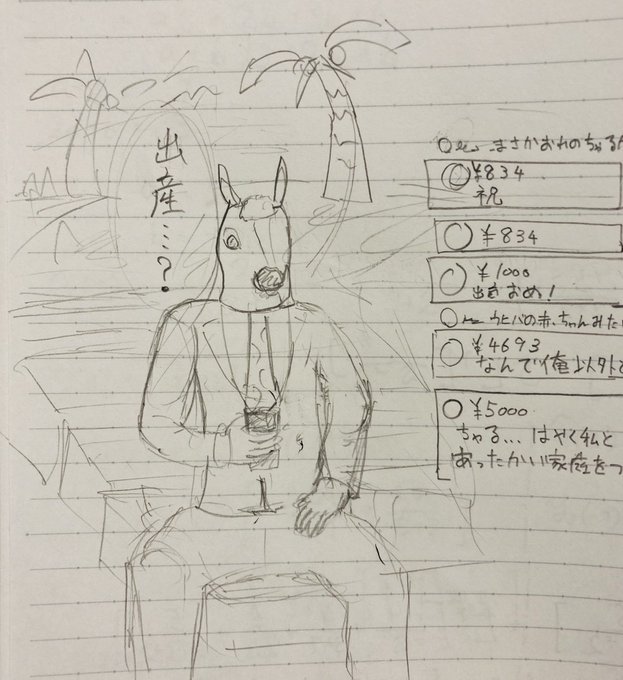 出産…?
まさかおれのちゃる
¥834
祝
¥834
¥1000
出産おめ!
ウヒバの赤ちゃんみた
¥4693
なんで俺以外と
¥5000
ちゃる…はやく私と
あったかい家庭をつ